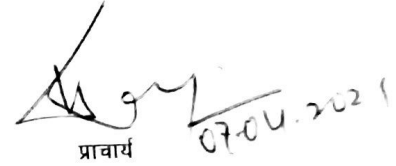 07.04.2021
प्राचार्य